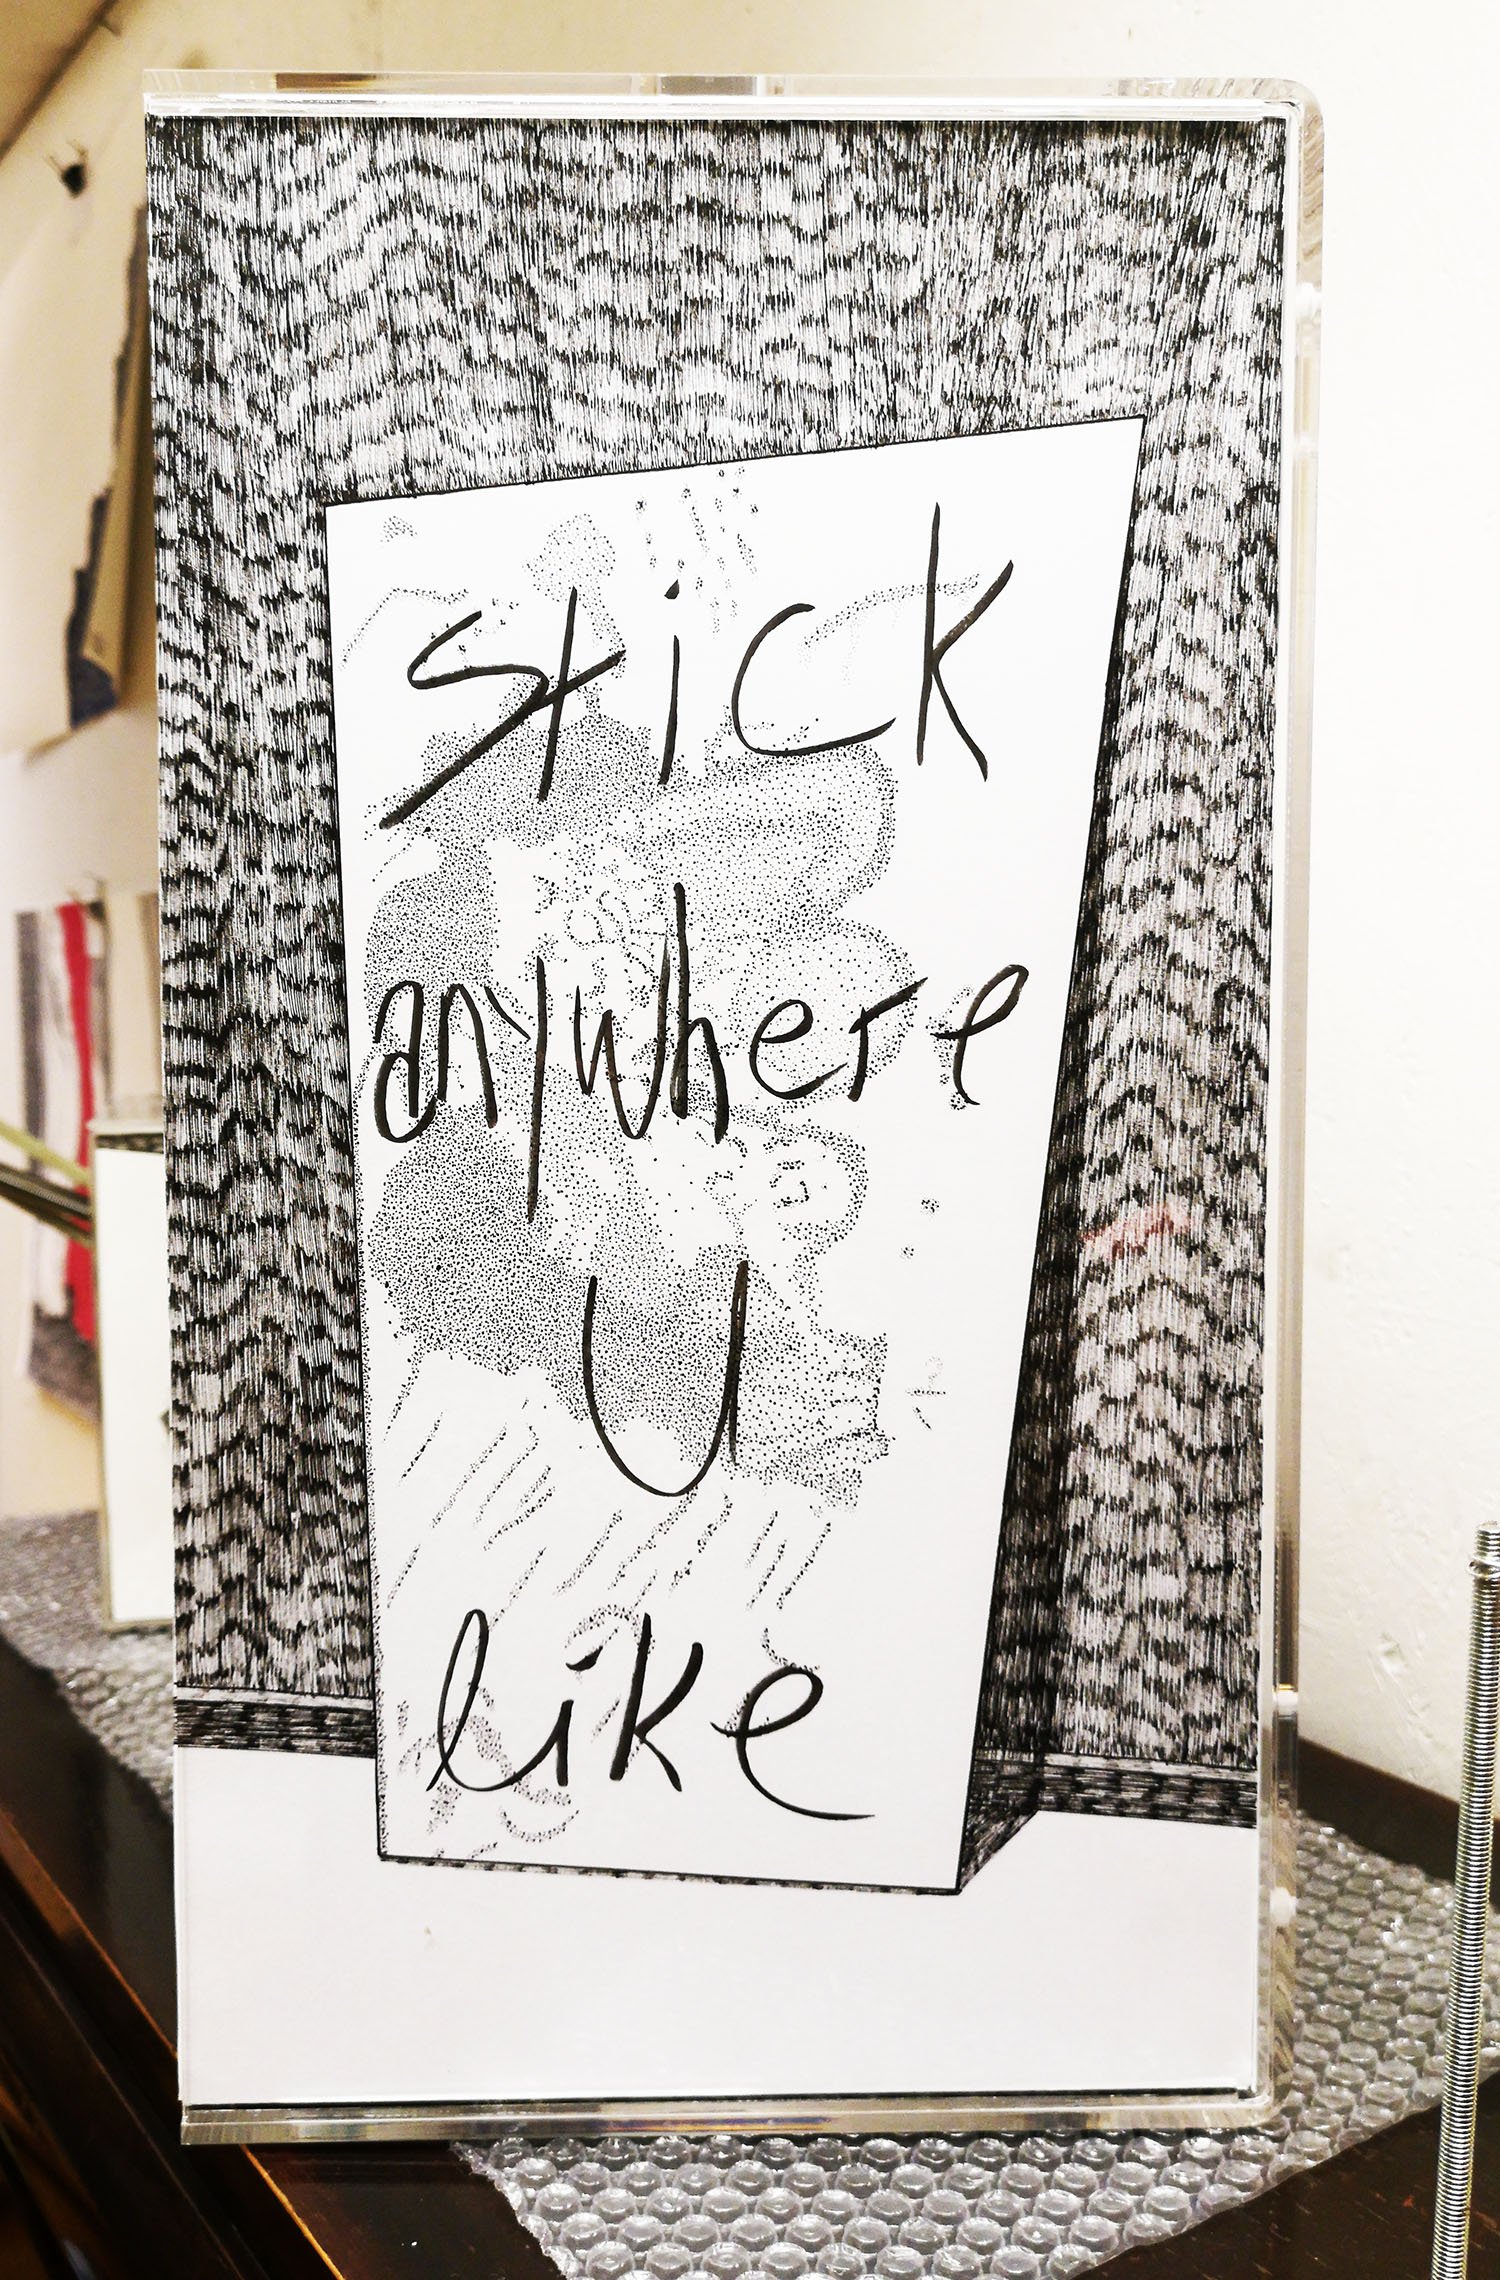 stick
anywhere
U
like